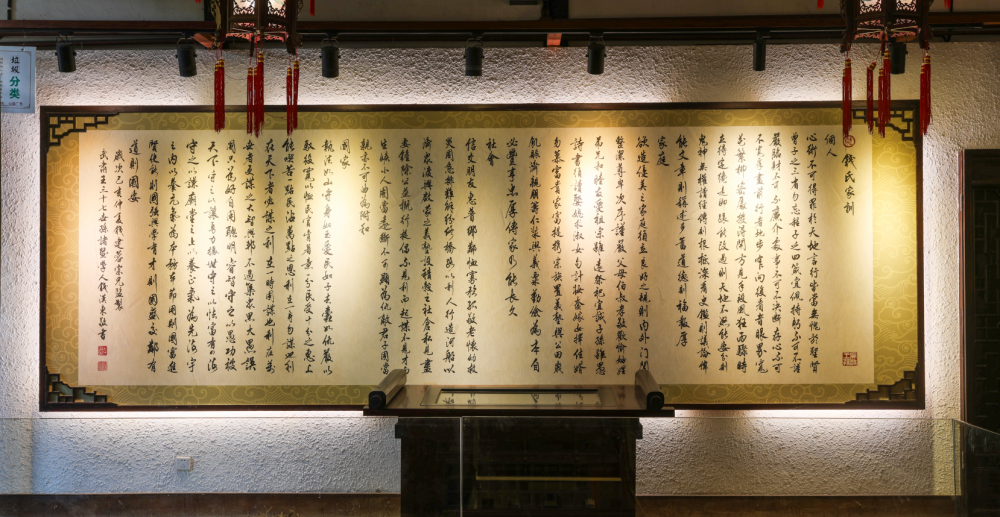 錢氏家訓
個人
心術不可得罪於天地言行皆當無愧於聖賢
曾子之三省勿忘程子之四箴宜佩持躬不可不謹
嚴臨財不可不廉介處事不可不決斷存心不可
不寬厚盡前行者地步窄向後看者眼界寬
花繁柳密處撥得開方見手段風狂雨驟時
立得定才是腳跟能改過則天地不怒能安分則
鬼神無權讀經傳則根柢深看史鑑則議論偉
能文章則稱述多蓄道德則福報厚
家庭
欲造優美之家庭須立良好之規則內外門閭
整潔尊卑次序謹嚴父母伯叔孝敬歡愉妯娌
弟兄和睦友愛祖宗雖遠祭祀宜誠子孫雖愚
詩書須讀娶媳求淑女勿計妝奩嫁女擇佳婿
勿慕富貴家富提攜宗族置義塾與公田歲
飢賑濟親朋籌仁漿與義粟勤儉為本自
必豐亨忠厚傳家乃能長久
社會
信交朋友惠普鄉鄰恤寡矜孤敬老懷幼救
災周急排難解紛修橋路以利人行造河船以
濟眾渡興啟蒙之義塾設積穀之社倉私見盡
要鏟除公益概行提倡不見利而起謀不見才而
生嫉小人固當遠斷不可顯為仇敵君子固當
親亦不可曲為附和
國家
執法如山守身如玉愛民如子去蠹如仇嚴以
馭役寬以恤民官肯著意一分民受十分之惠上
能吃苦一點民沾萬點之恩利在一身勿謀也利
在天下者必謀之利在一時固謀也利在萬
世者更謀之大智興邦不過集眾思大愚誤
國只為好自用聰明睿智守之以愚功被
天下守之以讓勇力振世守之以怯富有四海
守之以謙廟堂之上以養正氣為先海宇
之內以養元氣為本務本節用則國富進
賢使能則國強興學育才則國盛交鄰有
道則國安
歲次己亥仲夏錢建榮宗兄監製
武肅王三十七世孫諸暨學人錢漢東敬書
垃圾
分类